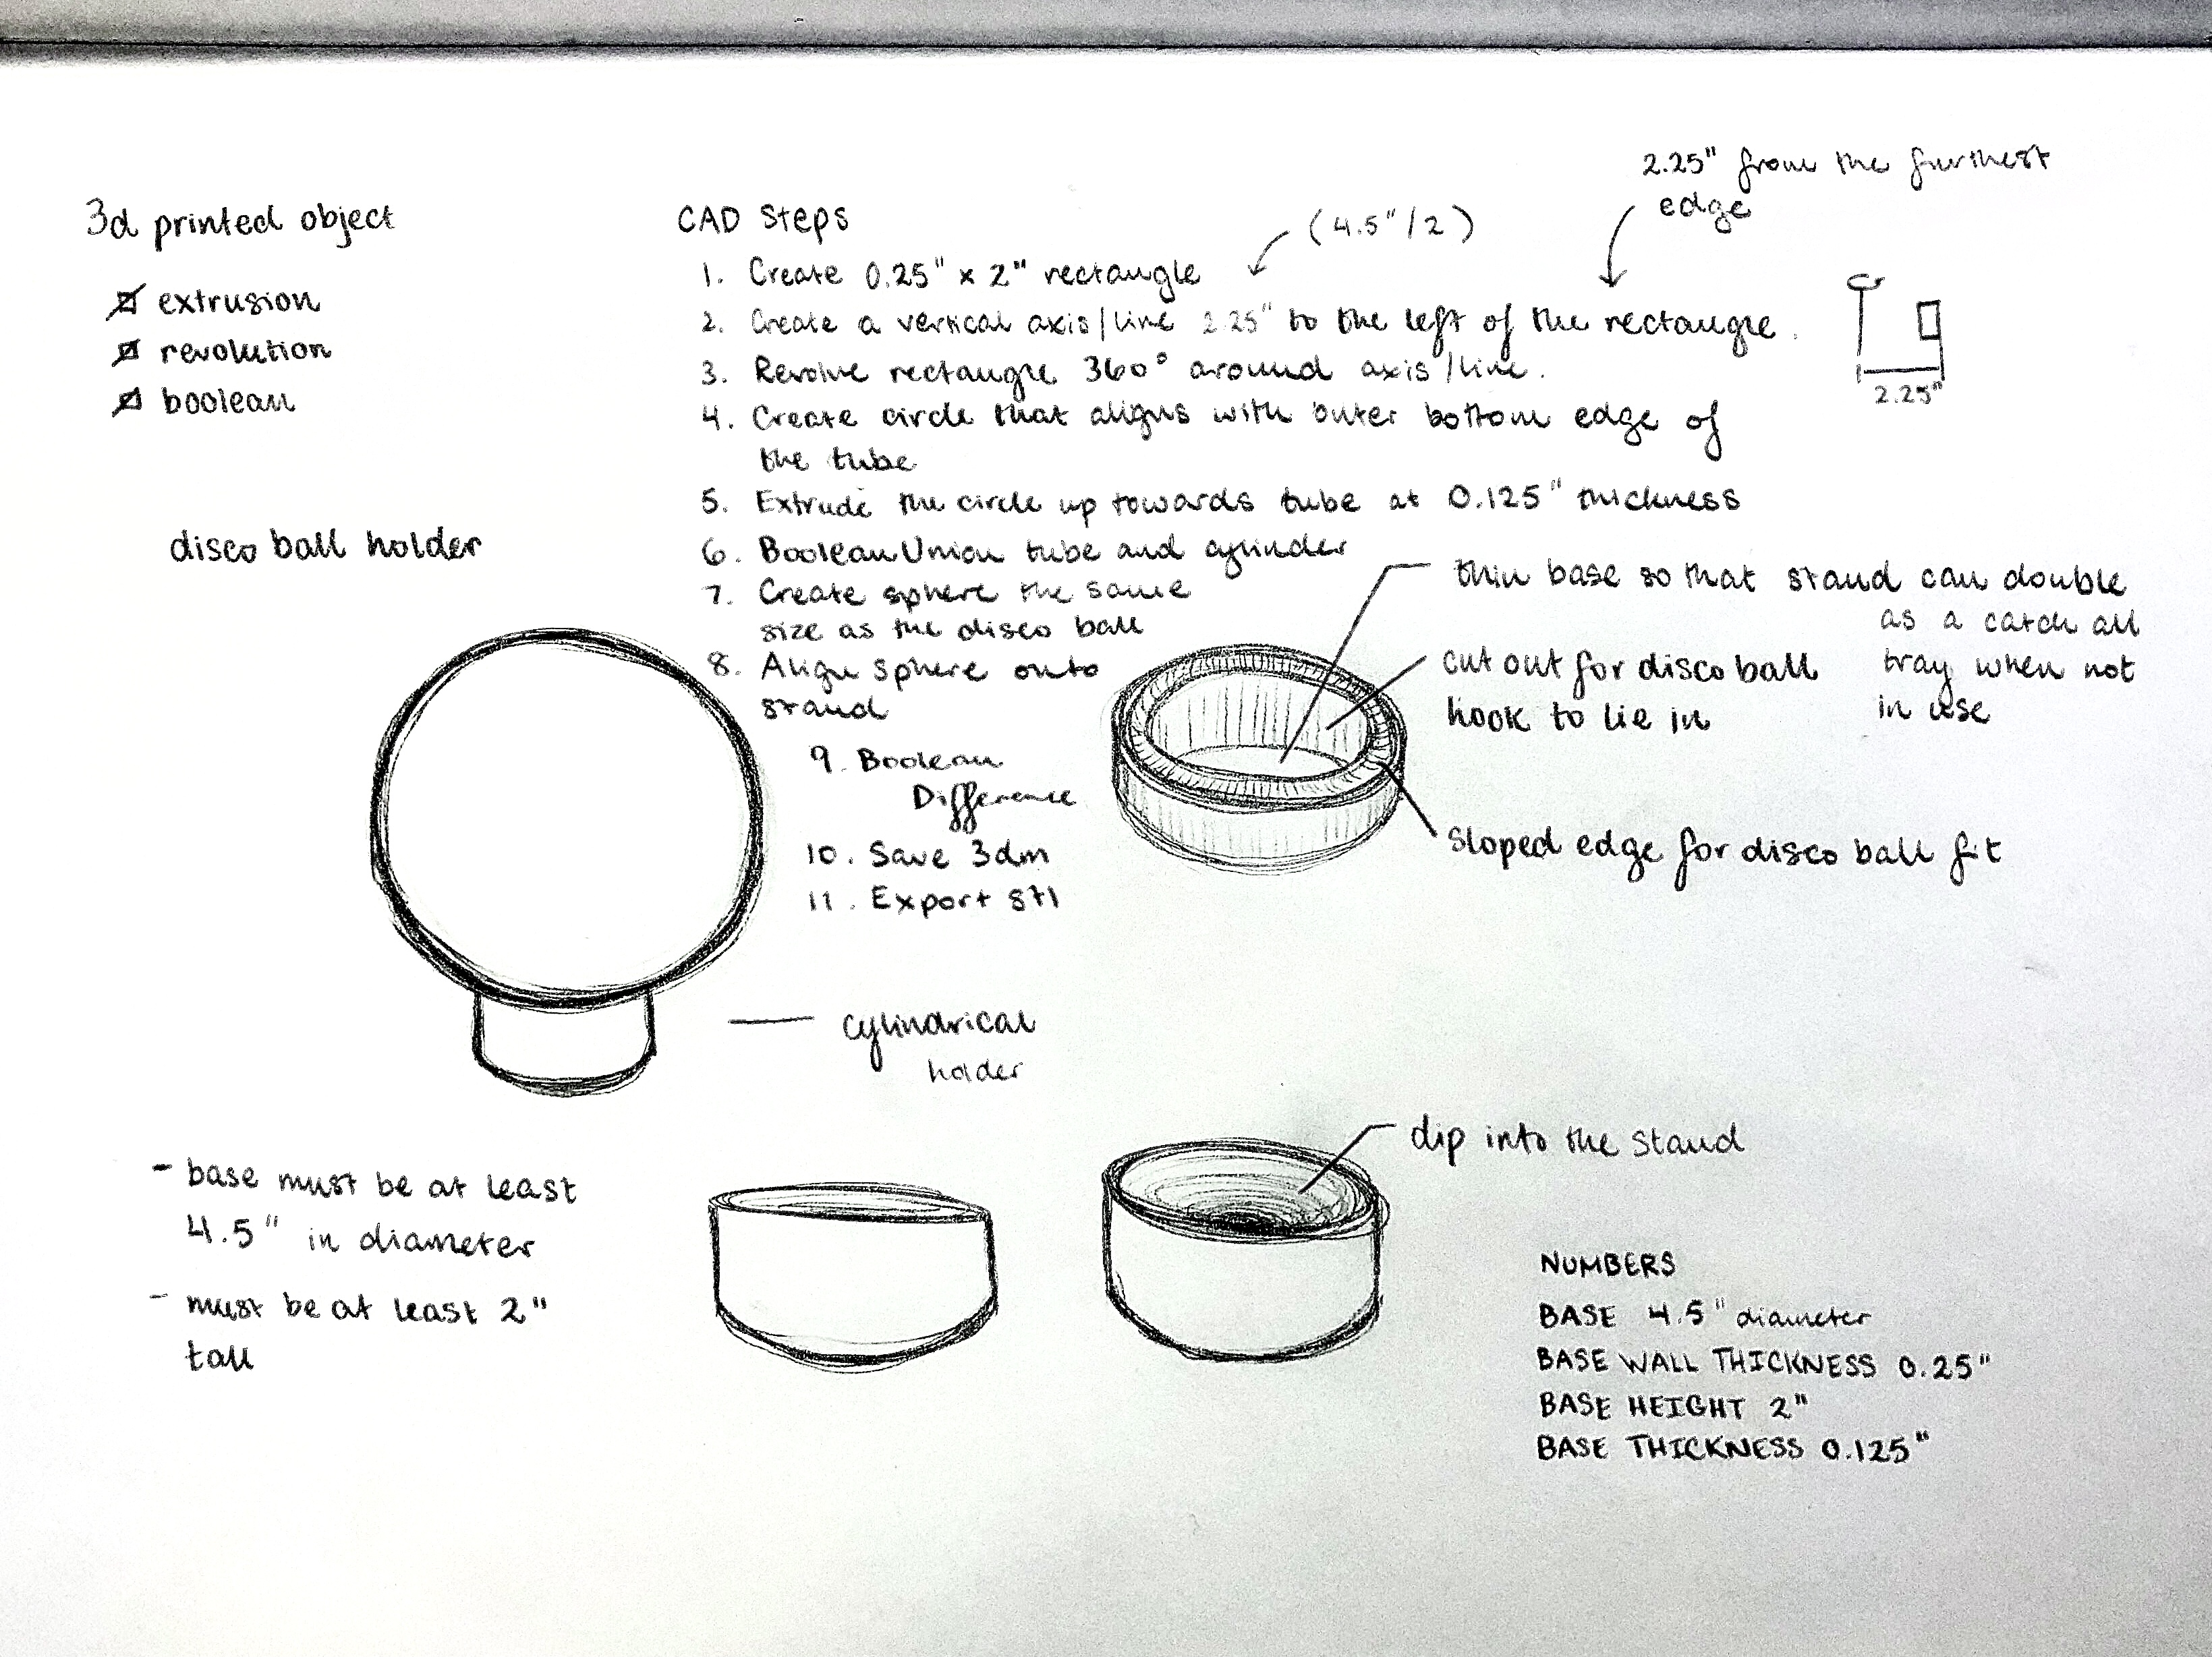 3d printed object
extrusion
revolution
boolean
disco ball holder
CAD Steps
(4.5"/2)
2.25" from the furthest
edge
1. Create 0.25" x 2" rectangle
2. Create a vertical axis/line 2.25" to the left of the rectangle.
3. Revolve rectangle 360° around axis/line.
4. Create circle that aligns with outer bottom edge of
the tube
5. Extrude the circle up towards tube at 0.125" thickness
6. Boolean Union tube and cylinder
7. Create sphere the same
size as the disco ball
8. Align sphere onto
stand
9. Boolean
Difference
10. Save 3dm
11. Export stl
2.25"
thin base so that stand can double
as a catch all
tray when not
in use
cut out for disco ball
hook to lie in
sloped edge for disco ball fit
cylindrical
holder
- base must be at least
4.5" in diameter
- must be at least 2"
tall
dip into the stand
NUMBERS
BASE 4.5" diameter
BASE WALL THICKNESS 0.25"
BASE HEIGHT 2"
BASE THICKNESS 0.125"